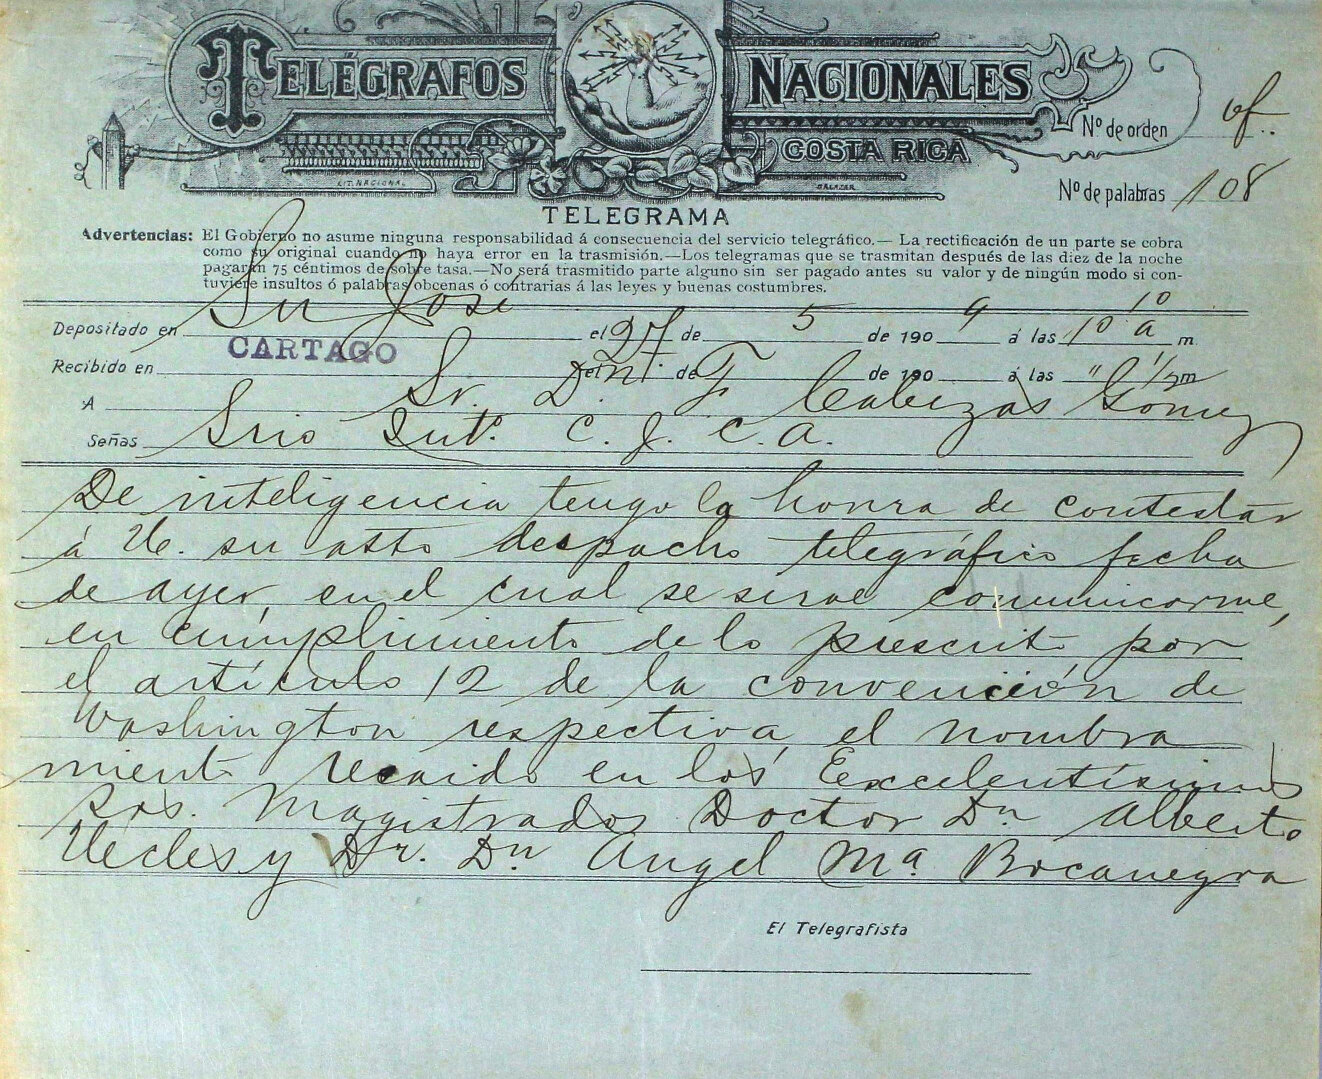 TELÉGRAFOS NACIONALES
COSTA RICA
Nº de orden of.
Nº de palabras 108
LIT. NACIONAL
SALAZAR
TELEGRAMA
Advertencias: El Gobierno no asume ninguna responsabilidad á consecuencia del servicio telegráfico.— La rectificación de un parte se cobra
como su original cuando no haya error en la trasmisión.—Los telegramas que se trasmitan después de las diez de la noche
pagarán 75 céntimos de sobre tasa.—No será trasmitido parte alguno sin ser pagado antes su valor y de ningún modo si con-
tuviere insultos ó palabras obcenas ó contrarias á las leyes y buenas costumbres.
Depositado en Sn José el 27 de 5 de 1909 á las 10 10 a m
Recibido en CARTAGO el de de 190 á las " 1/2 m
A Sr. Dn. F. Cabezas Gomez
Señas Srio Int. C. J. C. A.
De inteligencia tengo la honra de contestar
á Ue. su atto despacho telegráfico fecha
de ayer, en el cual se sirve comunicarme,
en cumplimiento de lo prescrito por
el artículo 12 de la convención de
Washington respectiva, el nombra
miento recaido en los Excelentísimos
Srs. Magistrados Doctor Dn Alberto
Ucles y Dr. Dn Angel Mª Bocanegra
El Telegrafista